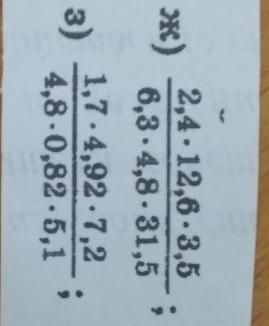 ж) 2,4·12,6·3,5
6,3·4,8·31,5 ;
з) 1,7·4,92·7,2
4,8·0,82·5,1 ;